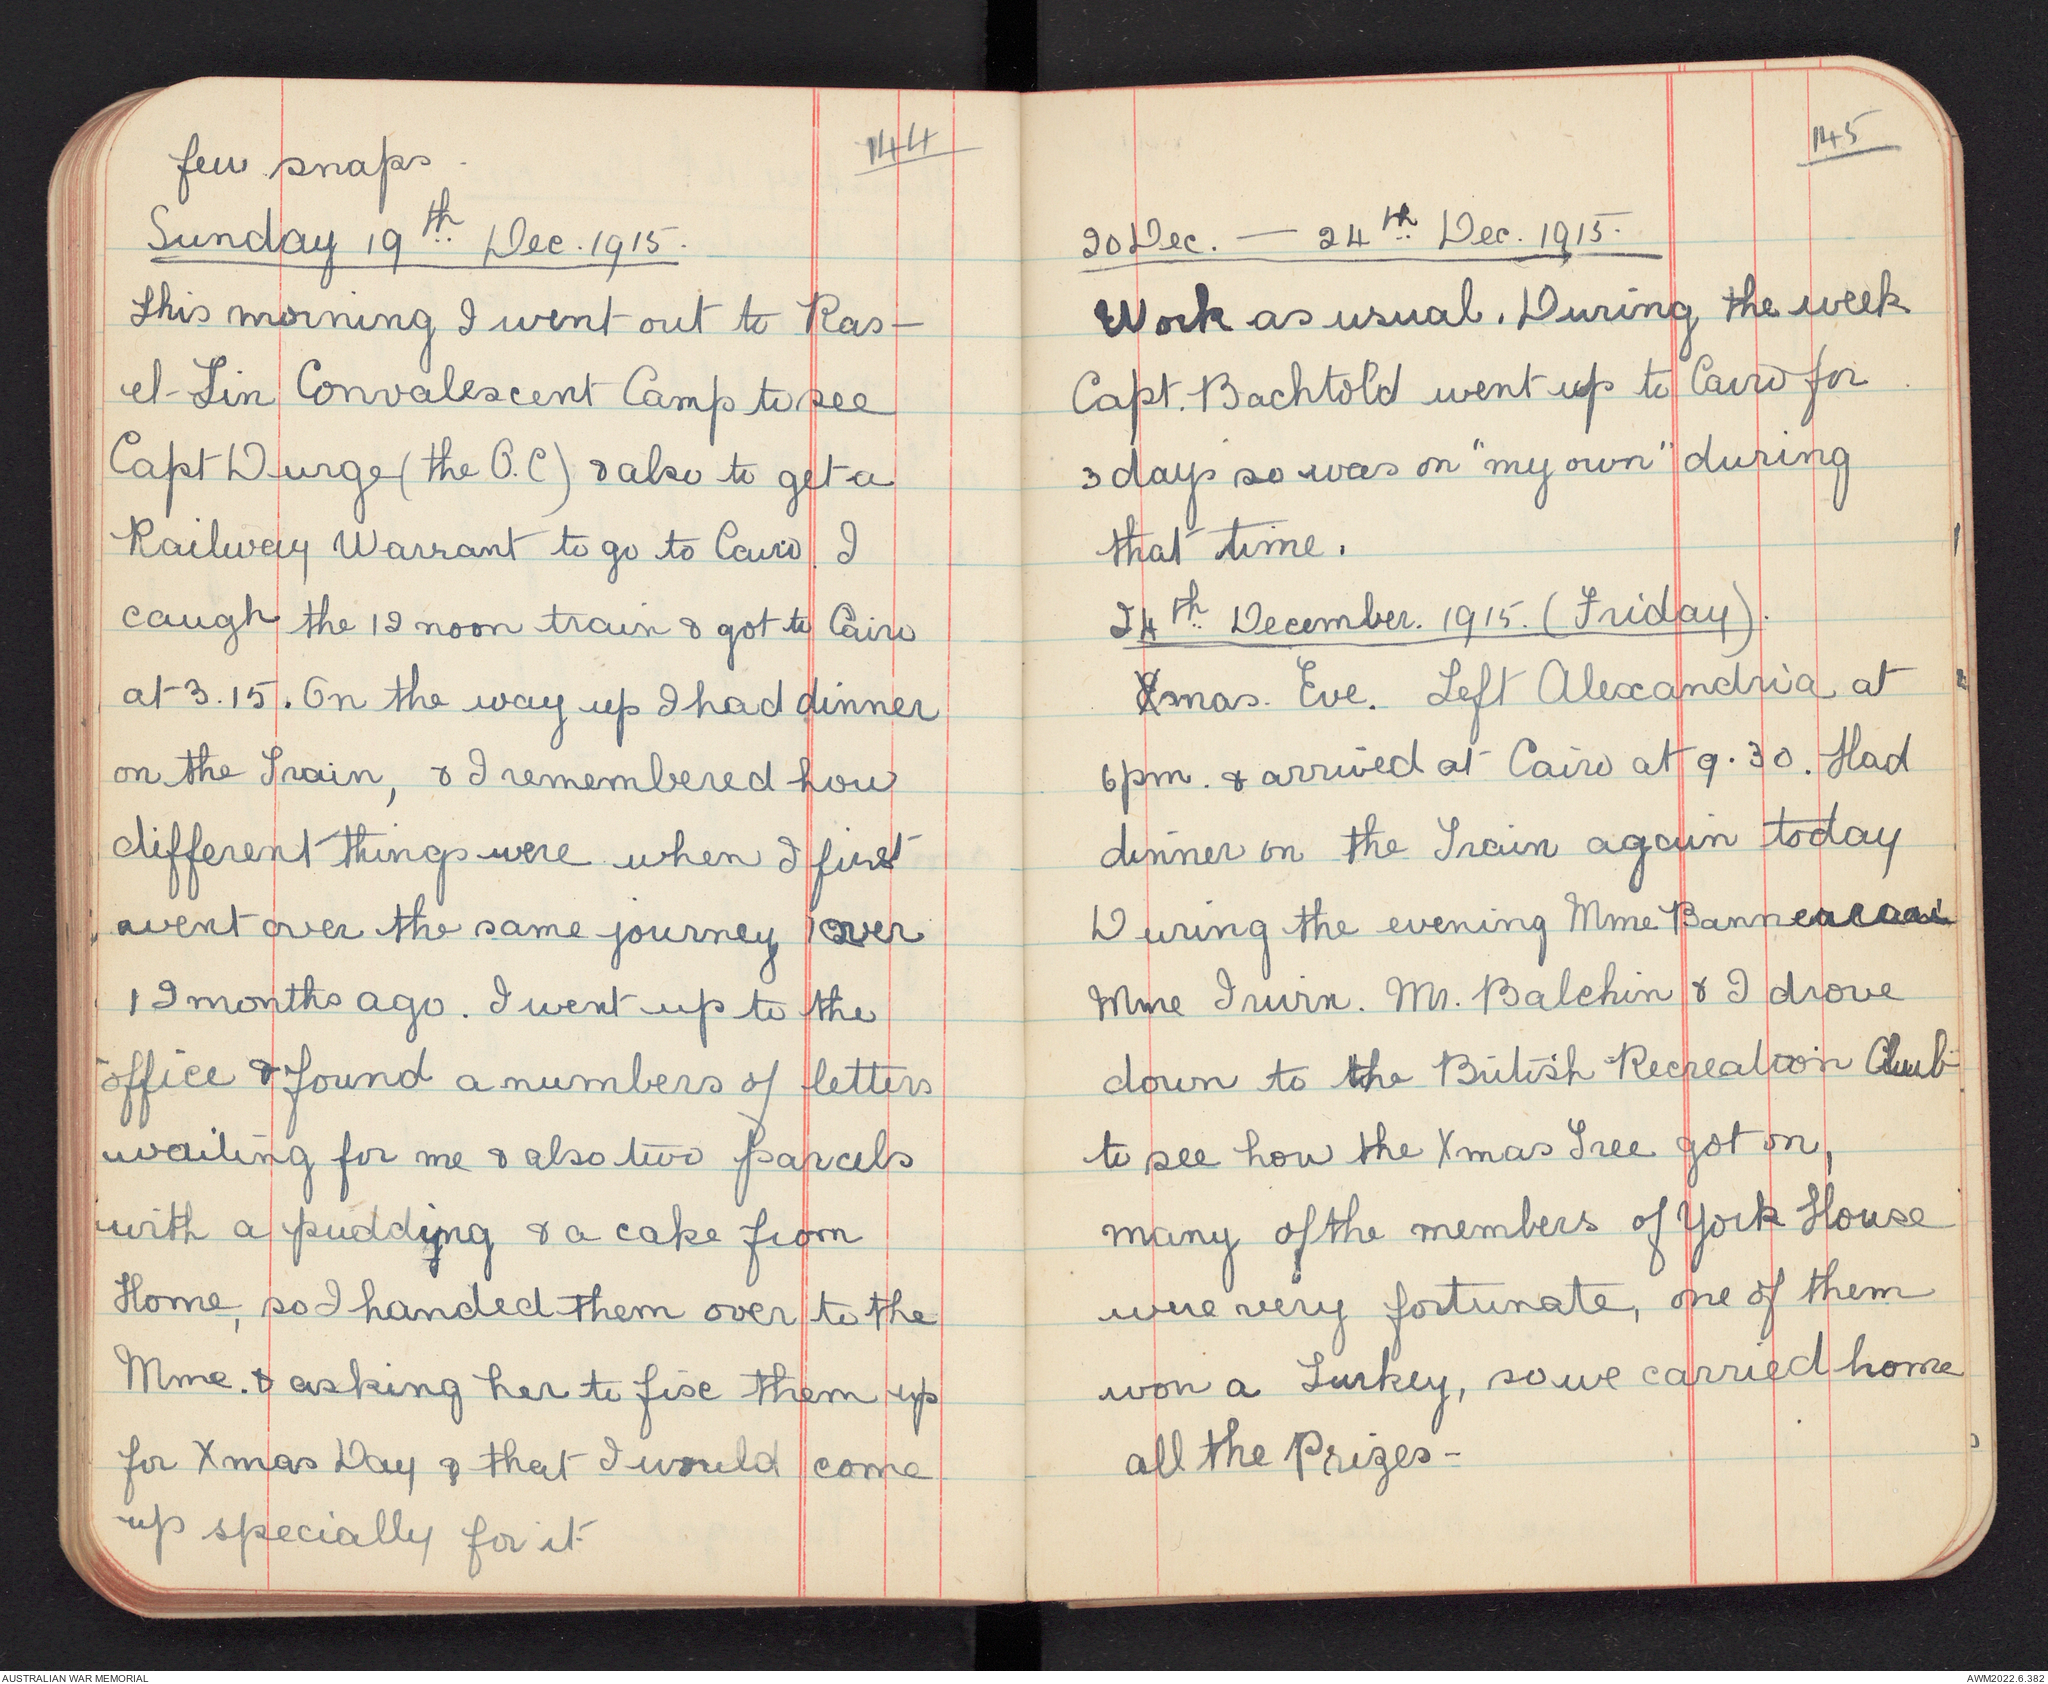 144
few snaps.
Sunday 19th Dec. 1915.
This morning I went out to Ras-
el-Tin Convalescent Camp to see
Capt Durge (the O.C) & also to get a
Railway Warrant to go to Cairo. I
caugh the 12 noon train & got to Cairo
at 3.15. On the way up I had dinner
on the Train, & I remembered how
different things were when I first
went over the same journey over
12 months ago. I went up to the
office & found a numbers of letters
waiting for me & also two parcels
with a pudding & a cake from
Home, so I handed them over to the
Mme. & asking her to fix them up
for Xmas Day & that I would come
up specially for it
145
20 Dec. — 24th Dec. 1915.
Work as usual. During the week
Capt. Bachtold went up to Cairo for
3 days so was on "my own" during
that time.
24th December. 1915. (Friday).
Xmas. Eve. Left Alexandria at
6pm. & arrived at Cairo at 9.30. Had
dinner on the Train again today
During the evening Mme
Mme Irwin. Mr. Balchin & I drove
down to the British Recreation Club
to see how the Xmas Tree got on,
many of the members of York House
were very fortunate, one of them
won a Turkey, so we carried home
all the Prizes-
AUSTRALIAN WAR MEMORIAL
AWM2022.6.382